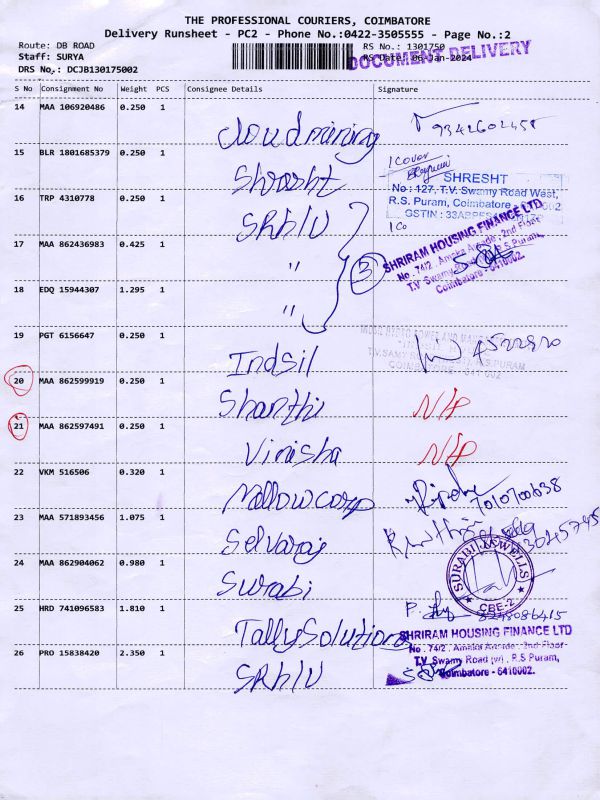 THE PROFESSIONAL COURIERS, COIMBATORE
Delivery Runsheet - PC2 - Phone No.:0422-3505555 - Page No.:2
Route: DB ROAD
RS No.: 1301750
DOCUMENT DELIVERY
Staff: SURYA
RS Date: 06-Jan-2024
DRS No.: DCJB130175002
S No Consignment No Weight PCS Consignee Details Signature
14 MAA 106920486 0.250 1
cloudmining
9342602458
15 BLR 1801685379 0.250 1
Shresht
1 Cover
SHRESHT
No : 127, T.V. Swamy Road West,
R.S. Puram, Coimbatore
GSTIN : 33
16 TRP 4310778 0.250 1
SRhIV
1 Co
SHRIRAM HOUSING FINANCE LTD
No. 74/2, Amaka Arcade, 2nd Floor
T.V Swamy R.S.Puram,
Coimbatore - 6410002.
17 MAA 862436983 0.425 1
"
3
18 EDQ 15944307 1.295 1
"
19 PGT 6156647 0.250 1
Indsil
INDSIL HYDRO POWER AND
T.V.SAMY R.S. PURAM
COIMBATORE - 641 002
4522920
20 MAA 862599919 0.250 1
Shanthi
N/P
21 MAA 862597491 0.250 1
Vinisha
N/P
22 VKM 516506 0.320 1
Mallowcorp
7010700638
23 MAA 571893456 1.075 1
Selvaraj
24 MAA 862904062 0.980 1
Surabi
SURABI JEWELLS
CBE-2
25 HRD 741096583 1.810 1
Tally Solutions
8248086415
26 PRO 15838420 2.350 1
SRhIV
SHRIRAM HOUSING FINANCE LTD
No. 74/2, Amaka Arcade, 2nd Floor
T.V Swamy Road (w), R.S Puram,
Coimbatore - 6410002.